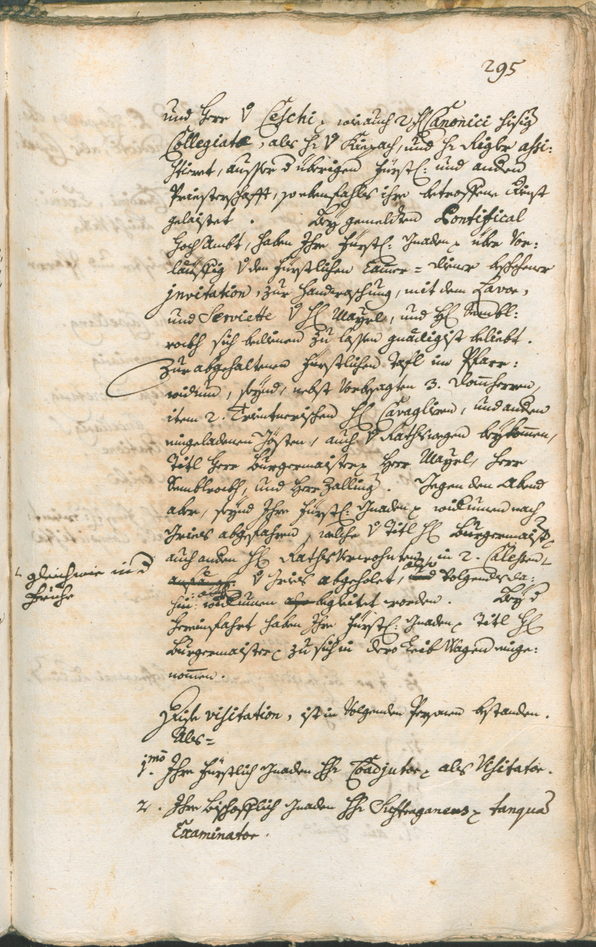 295
und Herr v Ceschi, wie auch 2 H Canonici hiesig
Collegiatæ, als H: v Künpach, und H: Rigler assi-
stiret, ausser d übrigen Fürstl: und andern
Priesterschafft, so ebenfahls ihre betroffene Dienst
geleistet. Bey gemeldten Pontifical
Hoch Ambt, haben Ihre Fürstl: Gnaden über Vor-
läuffig v den Fürstlichen Camer-Diener beschehene
invitation, zur Handwaschung, mit dem Lavor,
und Serviette v H Mayrl, und H Sembl-
rockh sich bedienen zu lassen gnädigist beliebt.
Zur abgehaltenen Fürstlichen Tafl im Pfarr-
widum, seynd, nebst Vorbesagten 3. Domherren,
item 2. Trientnerischen H Cavaglieren, und andern
eingeladenen Gästen, auch v Rathswegen beykommen,
Titl Herr Burgermaister Herr Mayrl, Herr
Semblrockh, und Herr Zallinger. Gegen den Abend
aber, seynd Ihre Fürstl: Gnaden widerumen nach
Gries abgefahren, welche v Titl H Burgermaister
auch andern H Rathsverwohnten, in 2. Calessen
gleichwie in d
Frühe
v Gries abgeholet, also Volgends da-
hin widerumen begleitet worden. Bey d
Hereinfahrt haben Ihre Fürstl: Gnaden Titl H
Burgermaister zu sich in dero Leib Wagen einge-
nommen.
Dise visitation, ist in Volgenden Persohnen bestanden.
Als=
1mo. Ihre Fürstlich Gnaden H Coadjutor als Visitator.
2. Ihre Bischofflich Gnaden H Suffraganeus tanquam
Examinator.